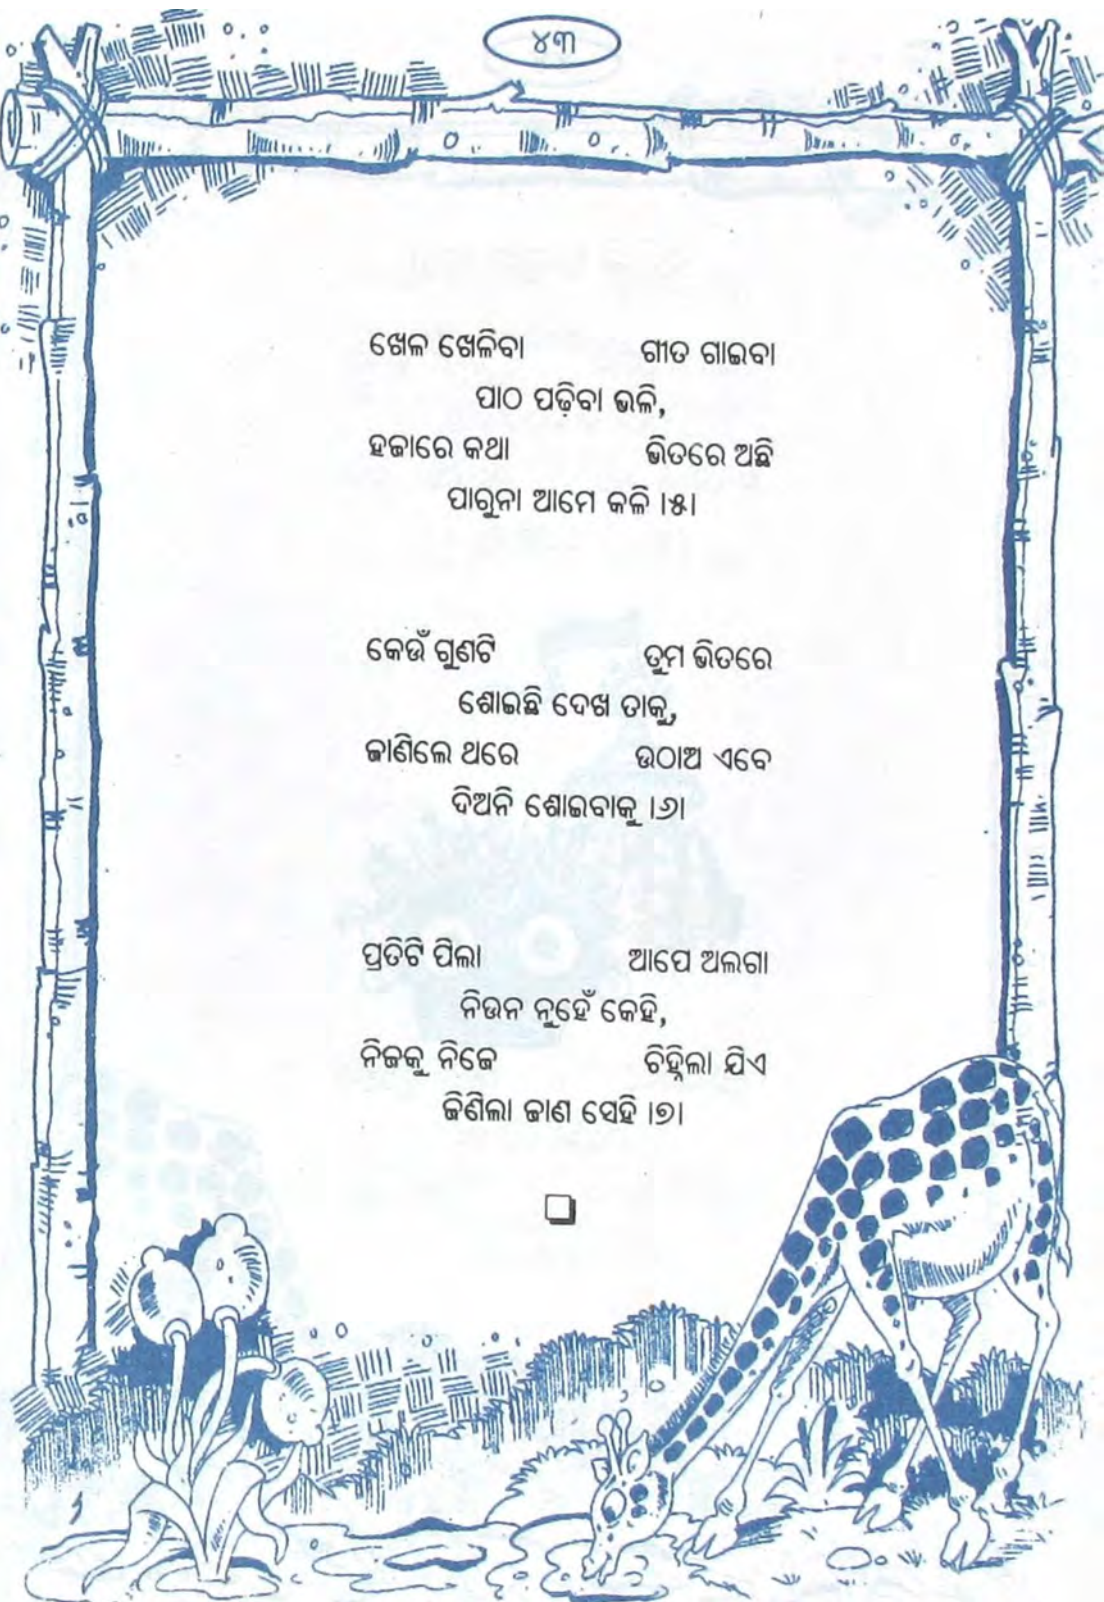 ୪୩
ଖେଳ ଖେଳିବା ଗୀତ ଗାଇବା
ପାଠ ପଢ଼ିବା ଭଳି,
ହଜାରେ କଥା ଭିତରେ ଅଛି
ପାରୁନା ଆମେ କଳି ।୫।
କେଉଁ ଗୁଣଟି ତୁମ ଭିତରେ
ଶୋଇଛି ଦେଖ ତାକୁ,
ଜାଣିଲେ ଥରେ ଉଠାଅ ଏବେ
ଦିଅନି ଶୋଇବାକୁ ।୬।
ପ୍ରତିଟି ପିଲା ଆପେ ଅଲଗା
ନିଉନ ନୁହେଁ କେହି,
ନିଜକୁ ନିଜେ ଚିହ୍ନିଲା ଯିଏ
ଜିଣିଲା ଜାଣ ସେହି ।୭।